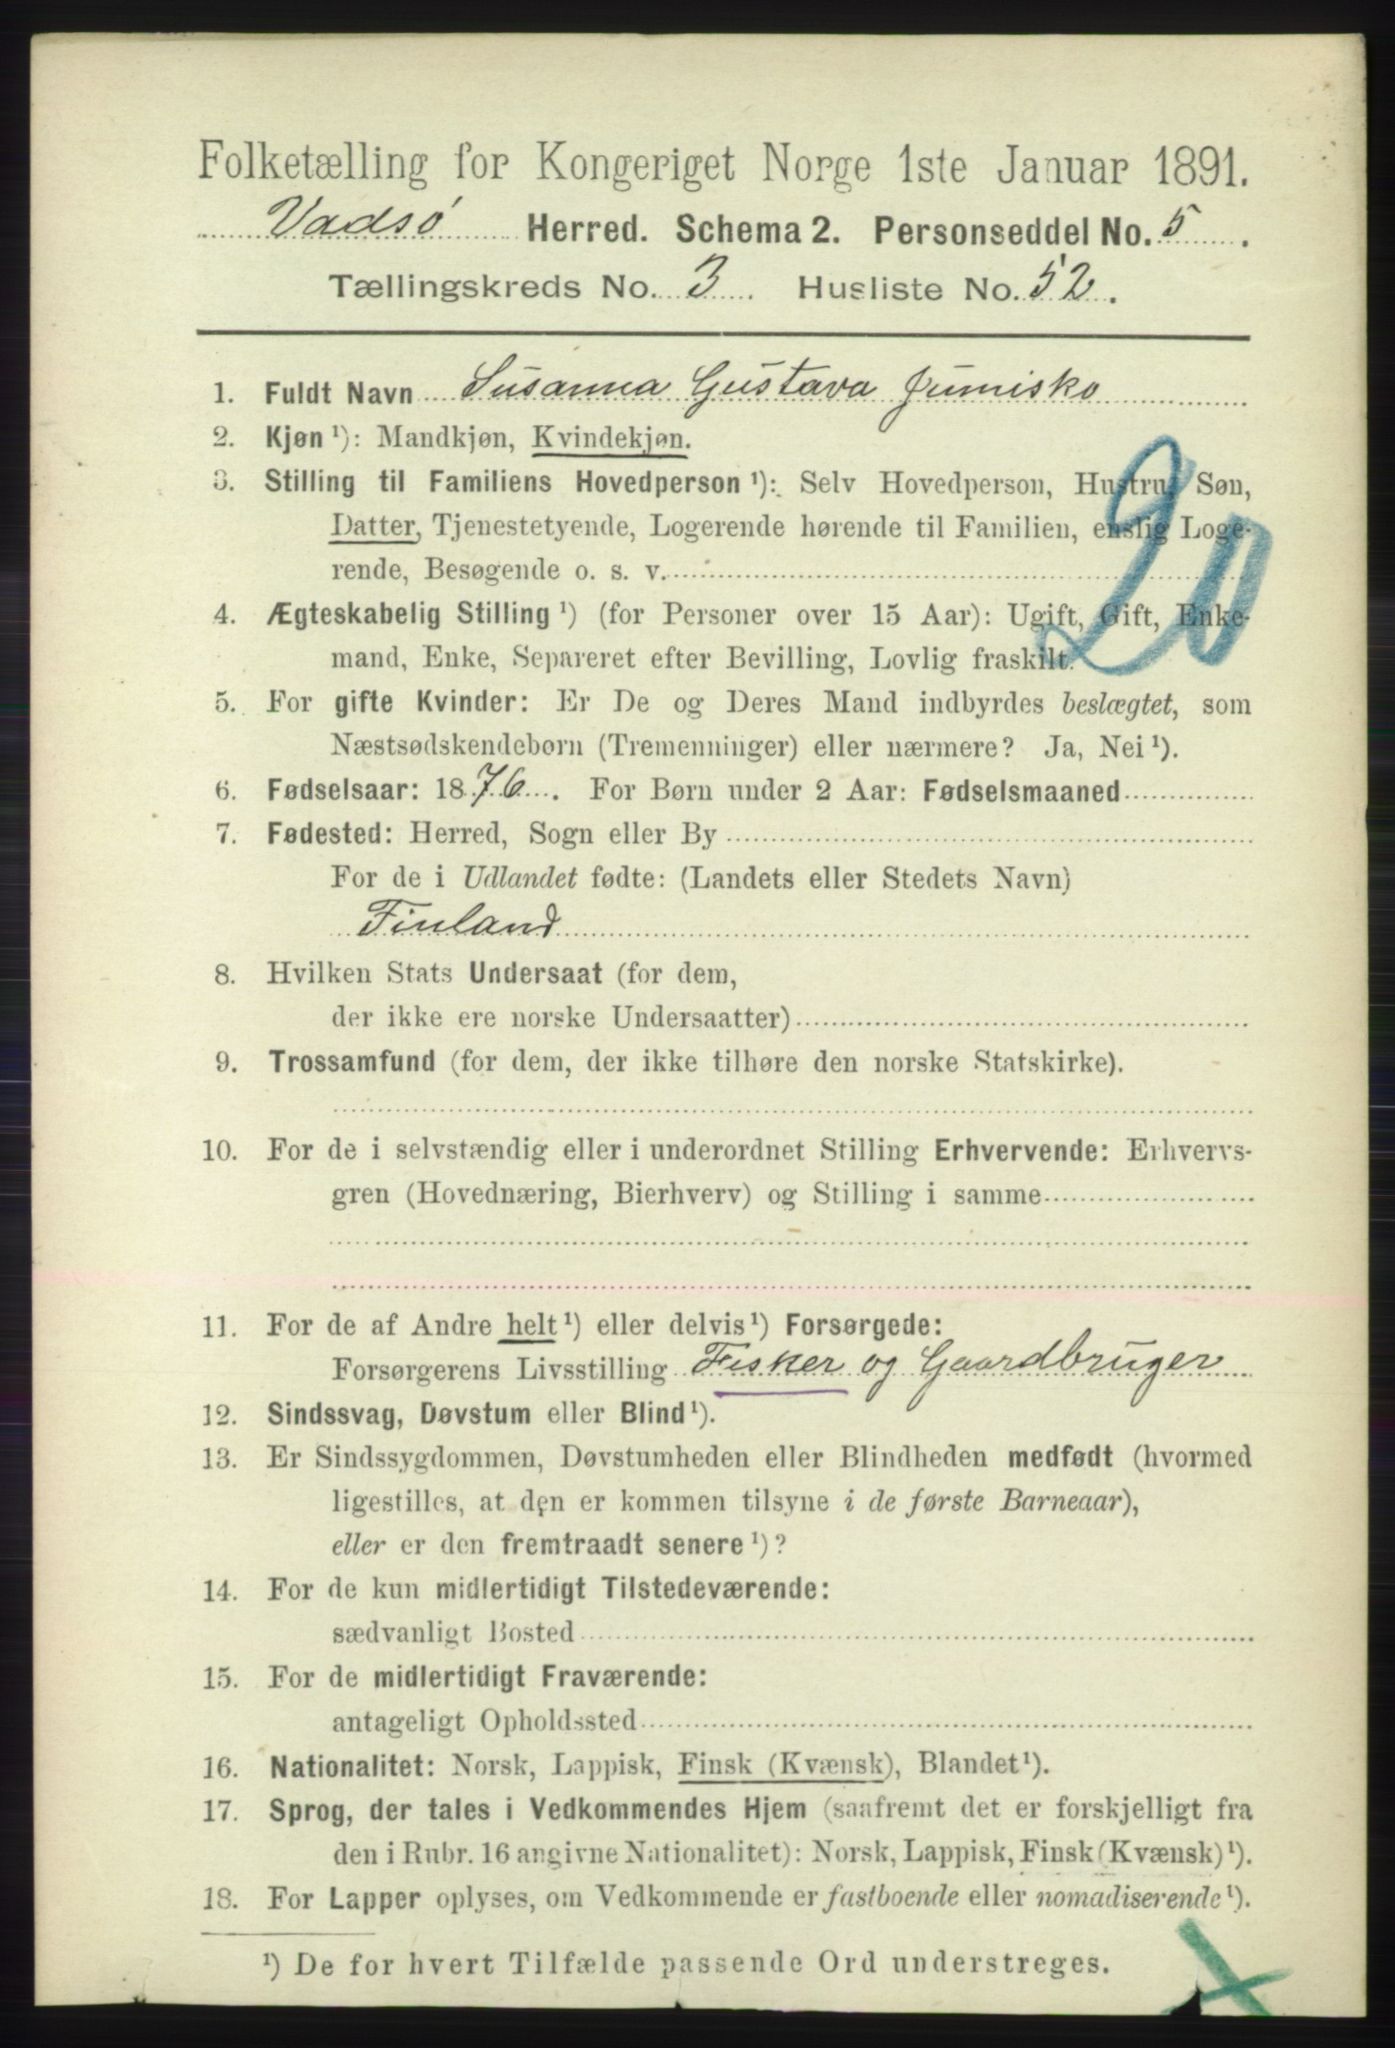 Folketælling for Kongeriget Norge 1ste Januar 1891.
Vadsø Herred. Schema 2. Personseddel No. 5.
Tællingskreds No. 3. Husliste No. 52.
1. Fuldt Navn Susanna Gustava Jumisko
2. Kjøn ¹): Mandkjøn, Kvindekjøn.
3. Stilling til Familiens Hovedperson ¹): Selv Hovedperson, Hustru, Søn,
Datter, Tjenestetyende, Logerende hørende til Familien, enslig Loge-
rende, Besøgende o. s. v.
20
4. Ægteskabelig Stilling ¹) (for Personer over 15 Aar): Ugift, Gift, Enke-
mand, Enke, Separeret efter Bevilling, Lovlig fraskilt.
5. For gifte Kvinder: Er De og Deres Mand indbyrdes beslægtet, som
Næstsødskendebørn (Tremenninger) eller nærmere? Ja, Nei ¹).
6. Fødselsaar: 1876. For Børn under 2 Aar: Fødselsmaaned
7. Fødested: Herred, Sogn eller By
For de i Udlandet fødte: (Landets eller Stedets Navn)
Finland
8. Hvilken Stats Undersaat (for dem,
der ikke ere norske Undersaatter)
9. Trossamfund (for dem, der ikke tilhøre den norske Statskirke).
10. For de i selvstændig eller i underordnet Stilling Erhvervende: Erhvervs-
gren (Hovednæring, Bierhverv) og Stilling i samme
11. For de af Andre helt ¹) eller delvis ¹) Forsørgede:
Forsørgerens Livsstilling Fisker og Gaardbruger
12. Sindssvag, Døvstum eller Blind ¹).
13. Er Sindssygdommen, Døvstumheden eller Blindheden medfødt (hvormed
ligestilles, at den er kommen tilsyne i de første Barneaar),
eller er den fremtraadt senere ¹)?
14. For de kun midlertidigt Tilstedeværende:
sædvanligt Bosted
15. For de midlertidigt Fraværende:
antageligt Opholdssted
16. Nationalitet: Norsk, Lappisk, Finsk (Kvænsk), Blandet ¹).
17. Sprog, der tales i Vedkommendes Hjem (saafremt det er forskjelligt fra
den i Rubr. 16 angivne Nationalitet): Norsk, Lappisk, Finsk (Kvænsk) ¹).
18. For Lapper oplyses, om Vedkommende er fastboende eller nomadiserende ¹).
¹) De for hvert Tilfælde passende Ord understreges.